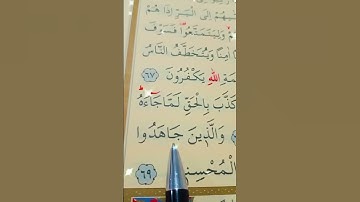 إِلَى الْبَرِّ إِذَا هُمْ
وَلِيَتَمَتَّعُوا فَسَوْفَ
اٰمِنًا وَيُتَخَطَّفُ النَّاسُ
ـمَةِ اللهِ يَكْفُرُونَ ٦٧
كَذَّبَ بِالْحَقِّ لَمَّا جَاءَهُ
وَالَّذِينَ جَاهَدُوا
ـلْمُحْسِنِيـ ٦٩